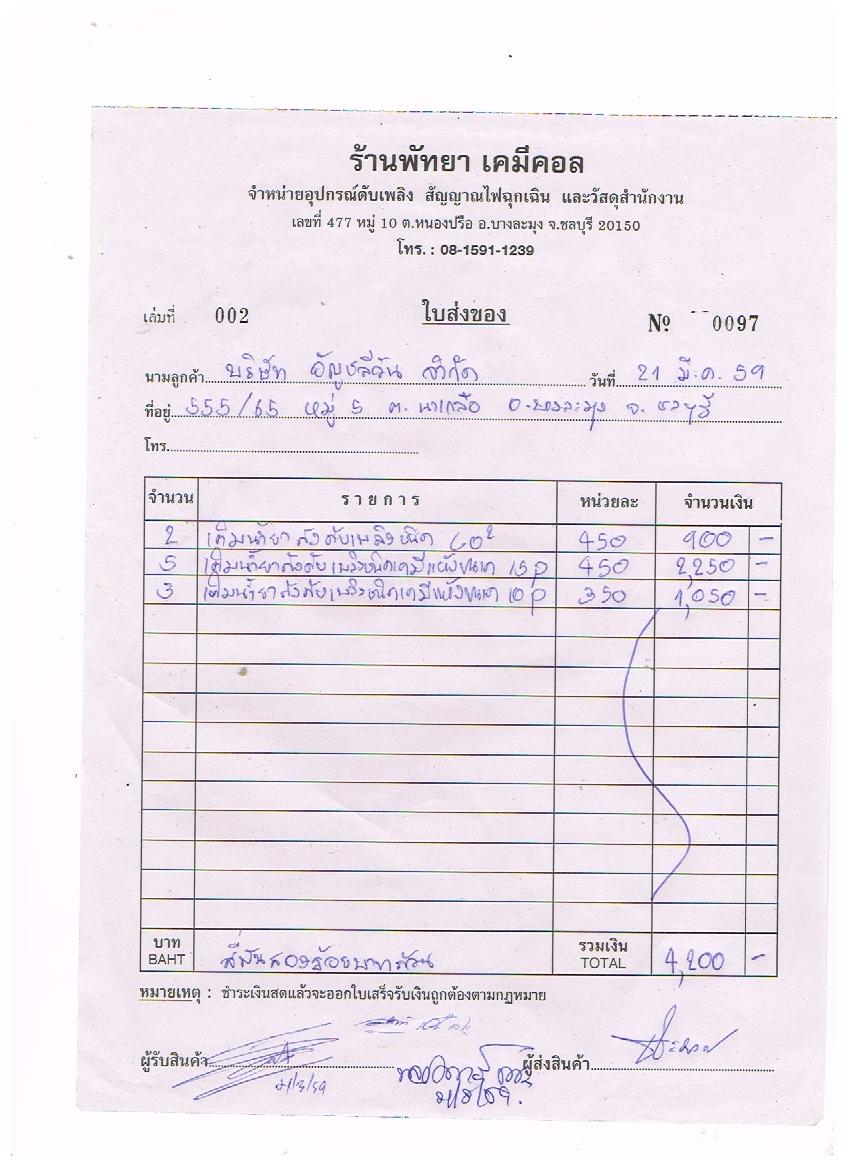 ร้านพัทยา เคมีคอล
จำหน่ายอุปกรณ์ดับเพลิง สัญญาณไฟฉุกเฉิน และวัสดุสำนักงาน
เลขที่ 477 หมู่ 10 ต.หนองปรือ อ.บางละมุง จ.ชลบุรี 20150
โทร. : 08-1591-1239
เล่มที่ 002 ใบส่งของ № 0097
นามลูกค้า บริษัท อัญชลีวัน จำกัด วันที่ 21 มี.ค. 59
ที่อยู่ 555/65 หมู่ 5 ต. นาเกลือ อ.บางละมุง จ. ชลบุรี
โทร.
จำนวน รายการ หน่วยละ จำนวนเงิน
2 เติมน้ำยาถังดับเพลิงชนิด CO2 450 900 -
5 เติมน้ำยาถังดับเพลิงชนิดเคมีแห้งขนาด 15 p 450 2,250 -
3 เติมน้ำยาถังดับเพลิงชนิดเคมีแห้งขนาด 10 p 350 1,050 -
บาท BAHT สี่พันสองร้อยบาทถ้วน รวมเงิน TOTAL 4,200 -
หมายเหตุ : ชำระเงินสดแล้วจะออกใบเสร็จรับเงินถูกต้องตามกฎหมาย
ผู้รับสินค้า ผู้ส่งสินค้า
21/3/59